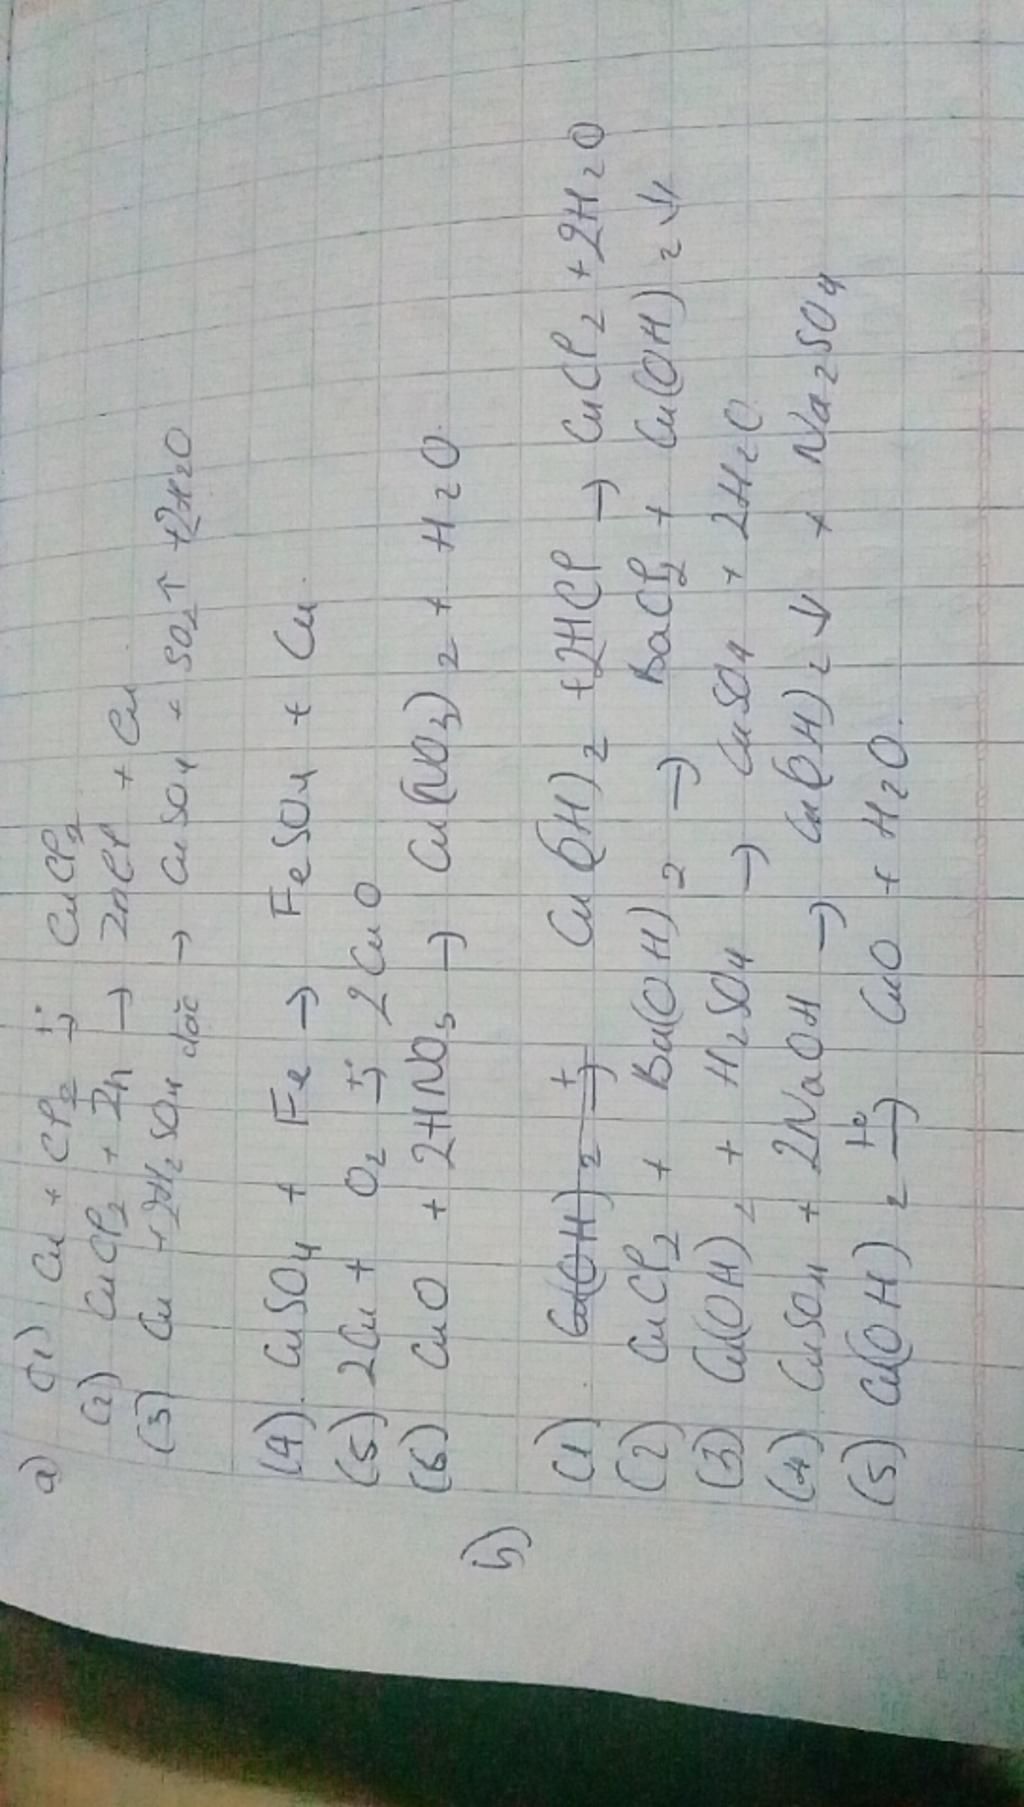 a) (1) Cu + Cl₂ t°→ CuCl₂
(2) CuCl₂ + Zn → ZnCl + Cu
(3) Cu + 2H₂SO₄ đặc → CuSO₄ + SO₂↑ + 2H₂O
(4) CuSO₄ + Fe → FeSO₄ + Cu.
(5) 2Cu + O₂ t°→ 2CuO
(6) CuO + 2HNO₃ → Cu(NO₃)₂ + H₂O.
b)
(1) Cu(OH)₂ t→ Cu(OH)₂ + 2HCl → CuCl₂ + 2H₂O
(2) CuCl₂ + Ba(OH)₂ → BaCl₂ + Cu(OH)₂↓
(3) Cu(OH)₂ + H₂SO₄ → CuSO₄ + 2H₂O
(4) CuSO₄ + 2NaOH → Cu(OH)₂↓ + Na₂SO₄
(5) Cu(OH)₂ t°→ CuO + H₂O.